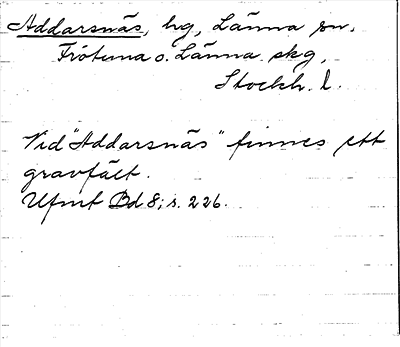 Addarsnäs, hg, Länna sn.
Frötuna o. Länna skg,
Stockh. l.
Vid "Addarsnäs" finnes ett
gravfält.
Ufmt Bd 8; s. 226.